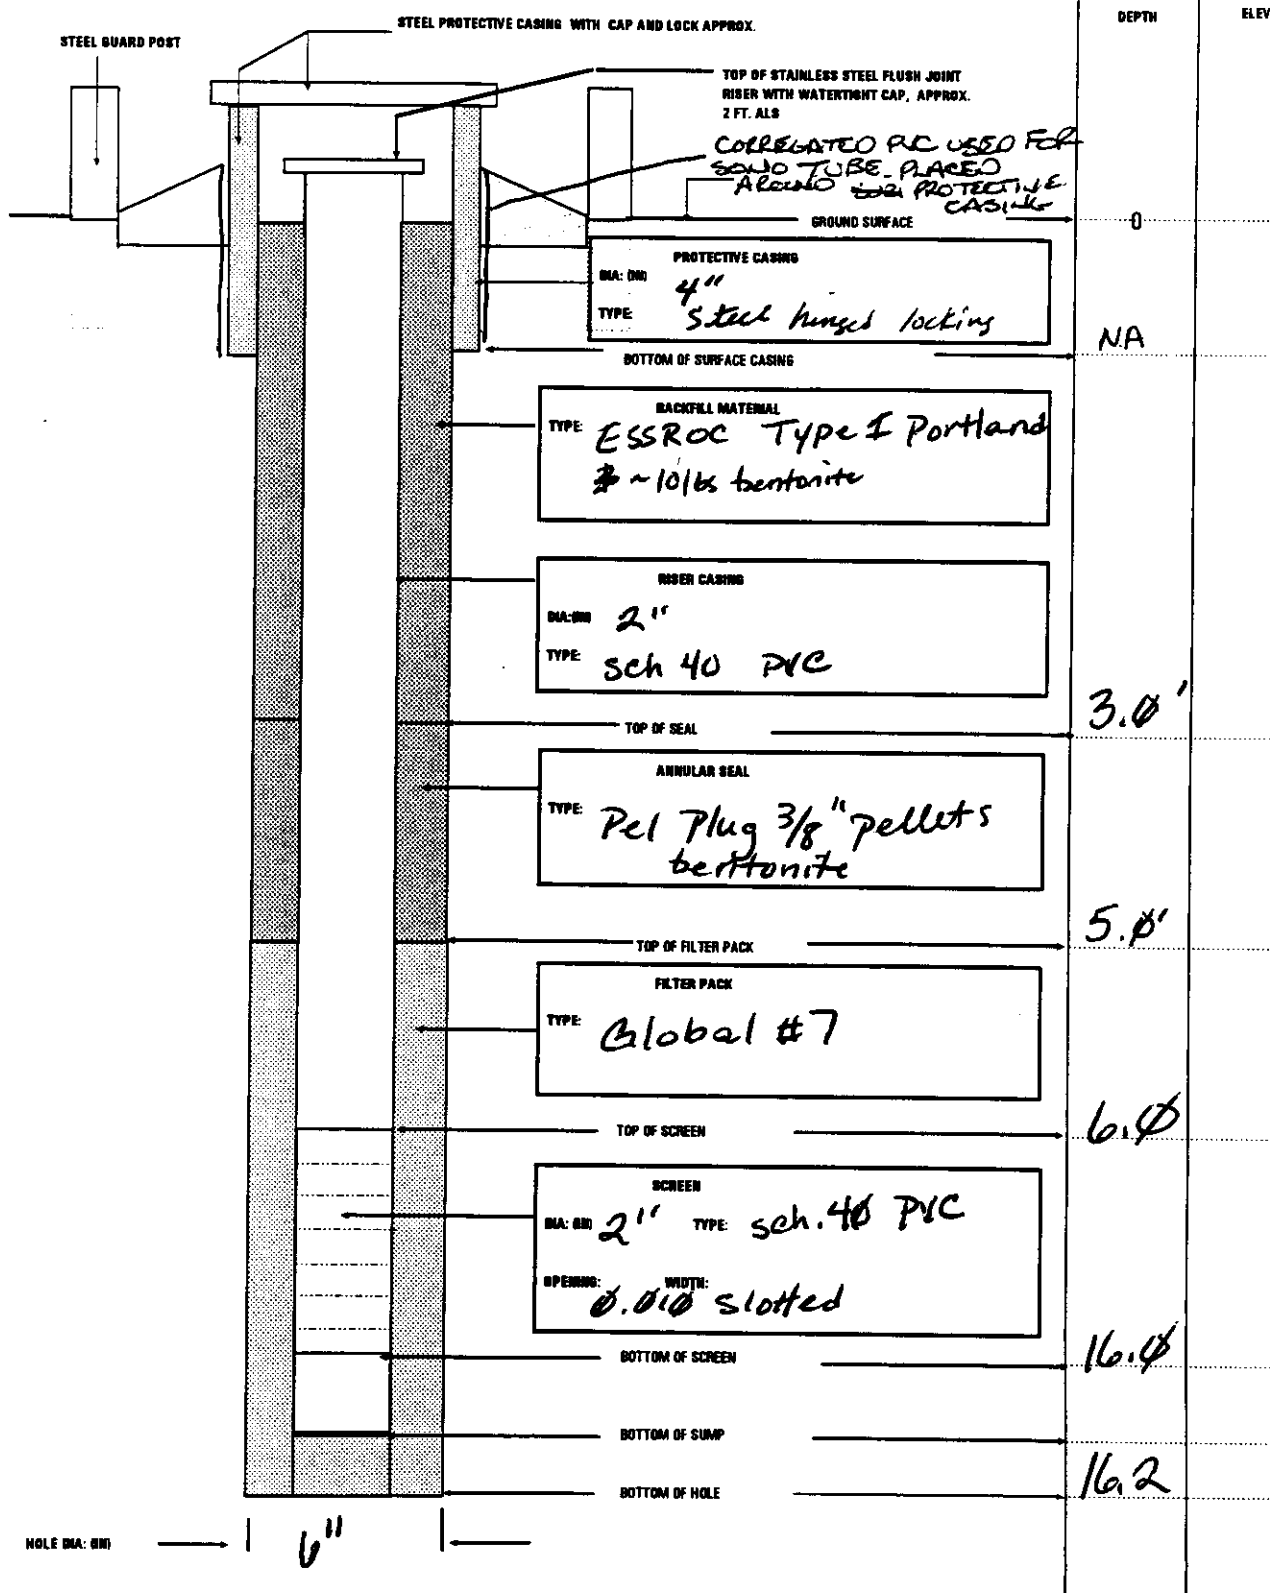 DEPTH
ELEV
STEEL PROTECTIVE CASING WITH CAP AND LOCK APPROX.
STEEL GUARD POST
TOP OF STAINLESS STEEL FLUSH JOINT
RISER WITH WATERTIGHT CAP, APPROX.
2 FT. ALS
CORREGATED PVC USED FOR
SONO TUBE PLACED
AROUND PROTECTIVE
CASING
GROUND SURFACE
0
PROTECTIVE CASING
DIA: (IN) 4"
TYPE: Steel hinged locking
NA
BOTTOM OF SURFACE CASING
BACKFILL MATERIAL
TYPE: ESSROC Type I Portland
~10 lbs bentonite
RISER CASING
DIA: (IN) 2"
TYPE: Sch 40 PVC
3.0'
TOP OF SEAL
ANNULAR SEAL
TYPE: Pel Plug 3/8" pellets
bentonite
5.0'
TOP OF FILTER PACK
FILTER PACK
TYPE: Global #7
TOP OF SCREEN
6.0
SCREEN
DIA: (IN) 2" TYPE: sch. 40 PVC
OPENING: WIDTH:
0.010 slotted
BOTTOM OF SCREEN
16.0
BOTTOM OF SUMP
BOTTOM OF HOLE
16.2
HOLE DIA: (IN) 6"